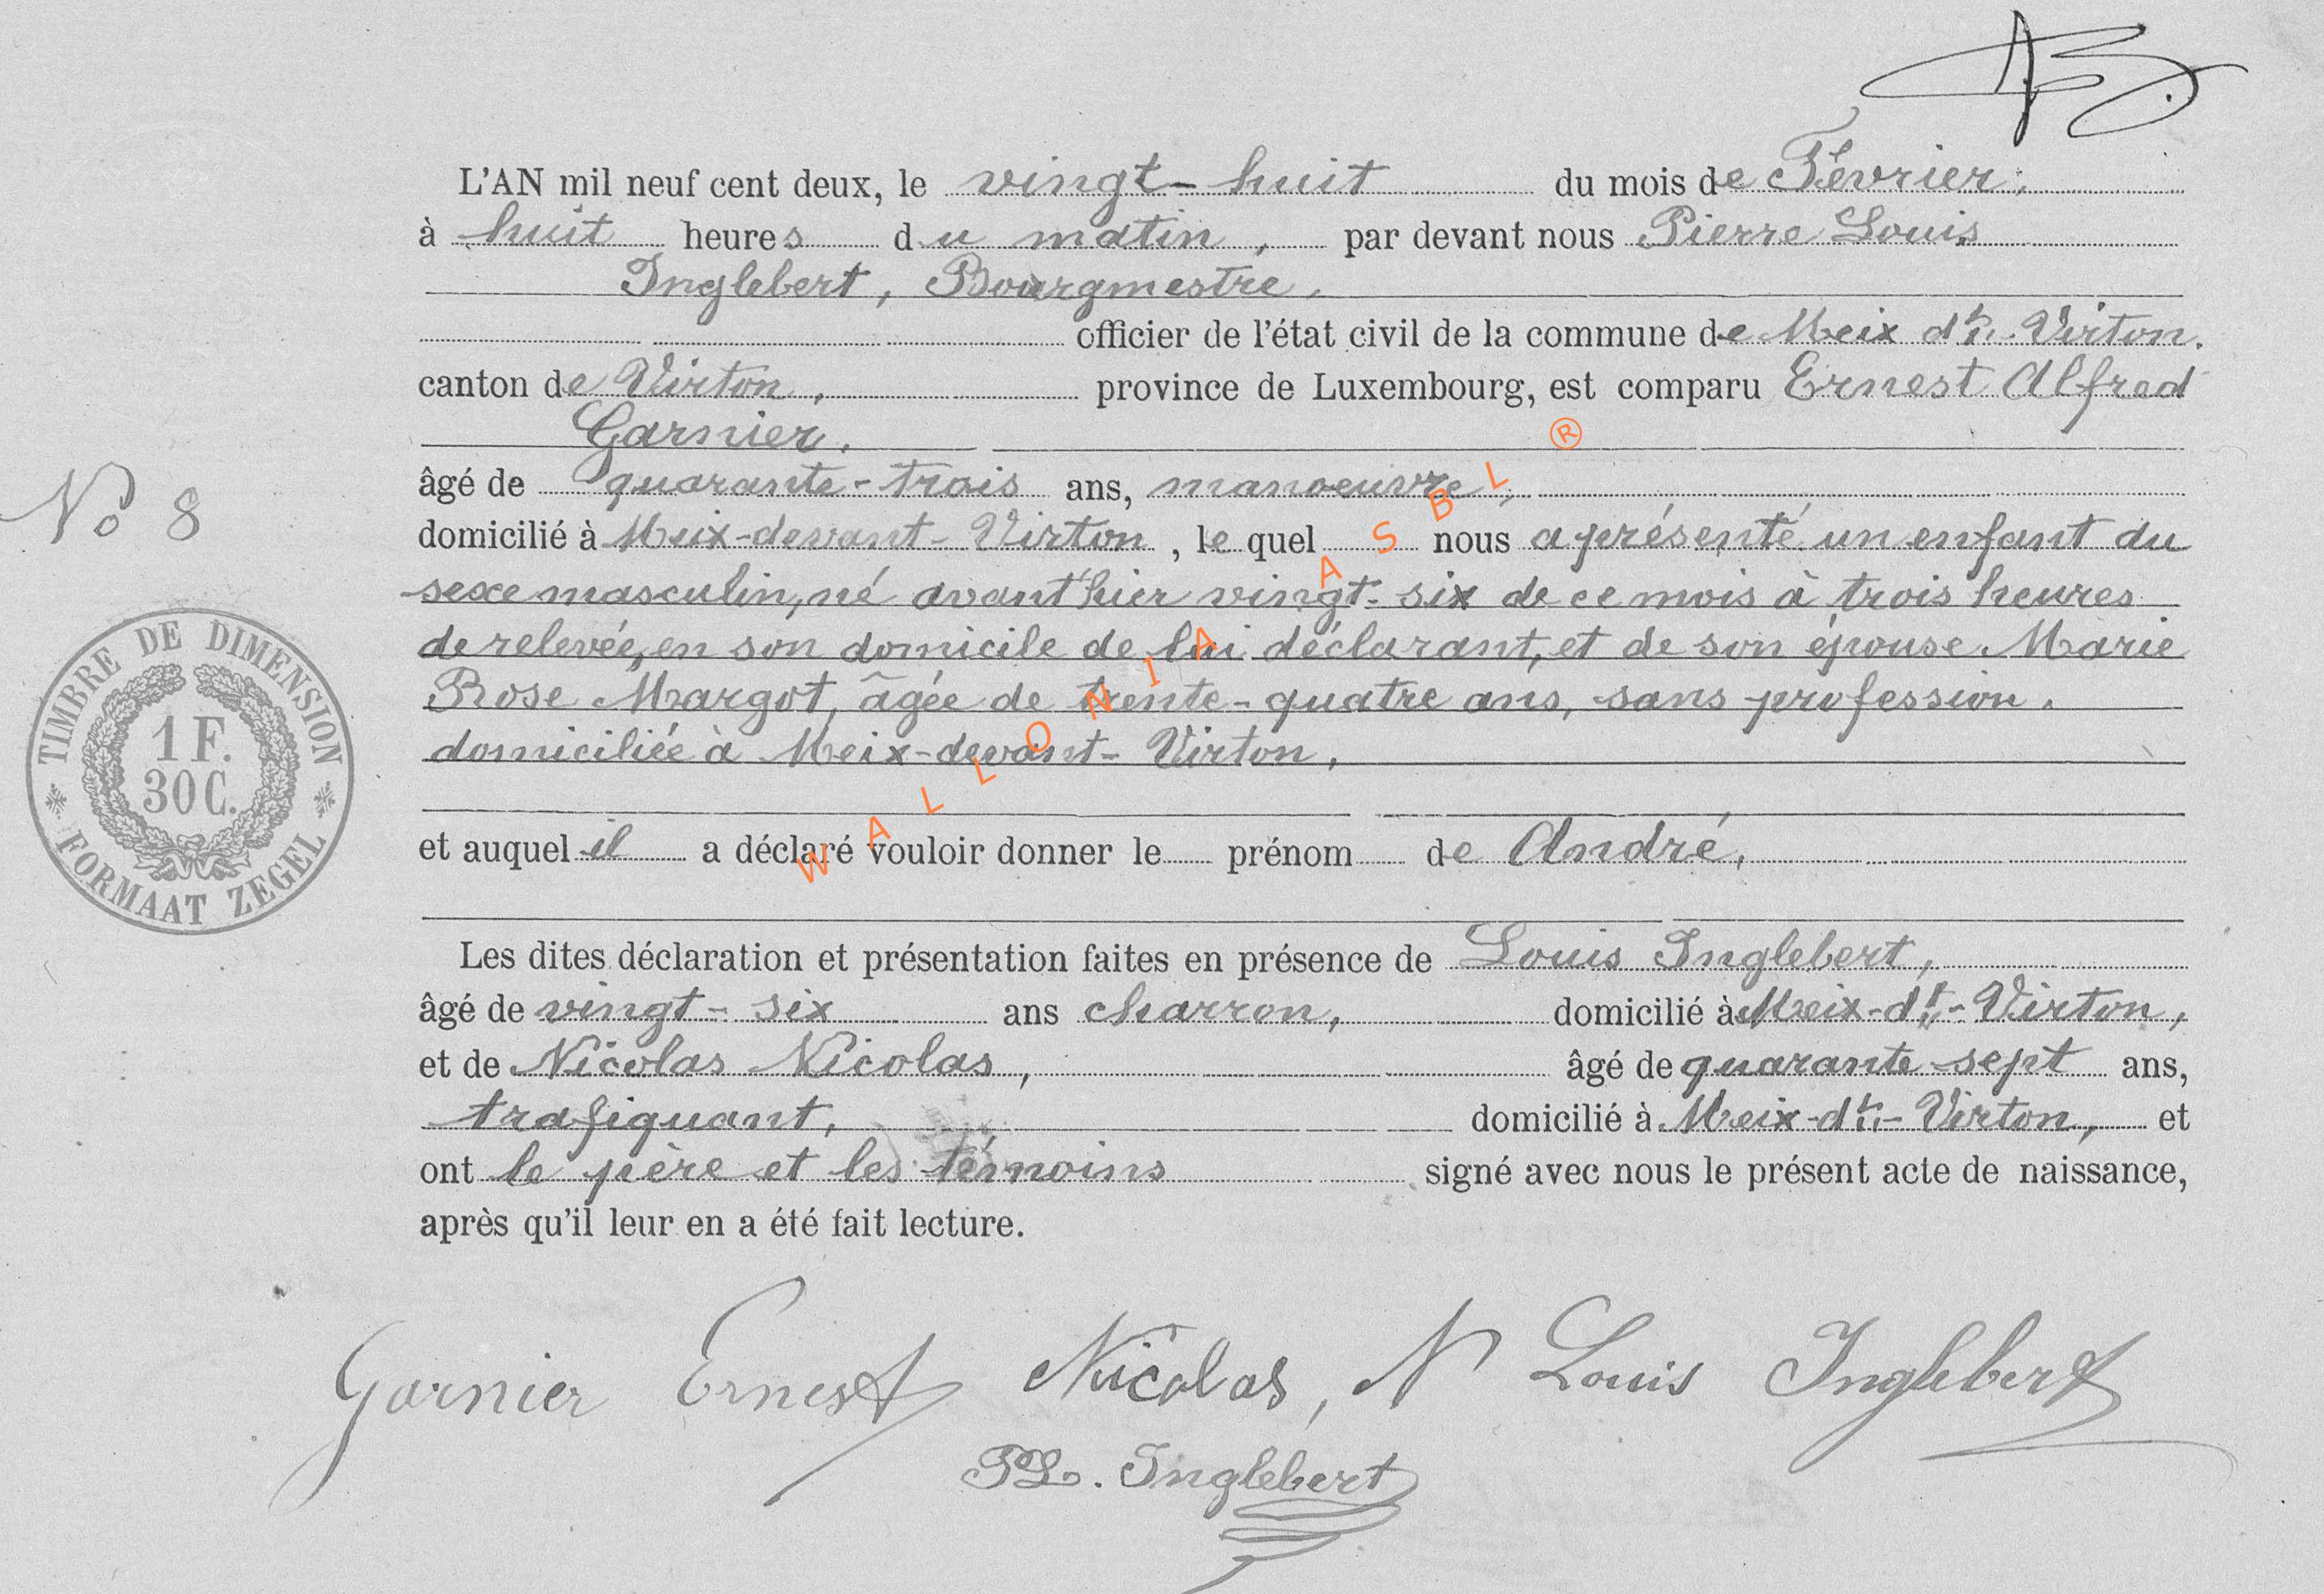 L'AN mil neuf cent deux, le vingt-huit du mois de Février,
à huit heures du matin, par devant nous Pierre Louis
Inglebert, Bourgmestre,
officier de l'état civil de la commune de Meix dt-Virton,
canton de Virton, province de Luxembourg, est comparu Ernest Alfred
Garnier,
âgé de quarante-trois ans, manoeuvre,
No 8
domicilié à Meix-devant-Virton, lequel nous a présenté un enfant du
sexe masculin, né avant'hier vingt-six de ce mois à trois heures
de relevée, en son domicile de lui déclarant, et de son épouse Marie
Rose Margot, âgée de trente-quatre ans, sans profession,
domiciliée à Meix-devant-Virton,
et auquel il a déclaré vouloir donner le prénom de André,
Les dites déclaration et présentation faites en présence de Louis Inglebert,
âgé de vingt-six ans charron, domicilié à Meix-dt-Virton,
et de Nicolas Nicolas, âgé de quarante sept ans,
trafiquant, domicilié à Meix-dt-Virton, et
ont le père et les témoins signé avec nous le présent acte de naissance,
après qu'il leur en a été fait lecture.
Garnier Ernest Nicolas, N Louis Inglebert
PL. Inglebert
TIMBRE DE DIMENSION
1 F.
30 C.
FORMAAT ZEGEL
WALLONIA ASBL ®